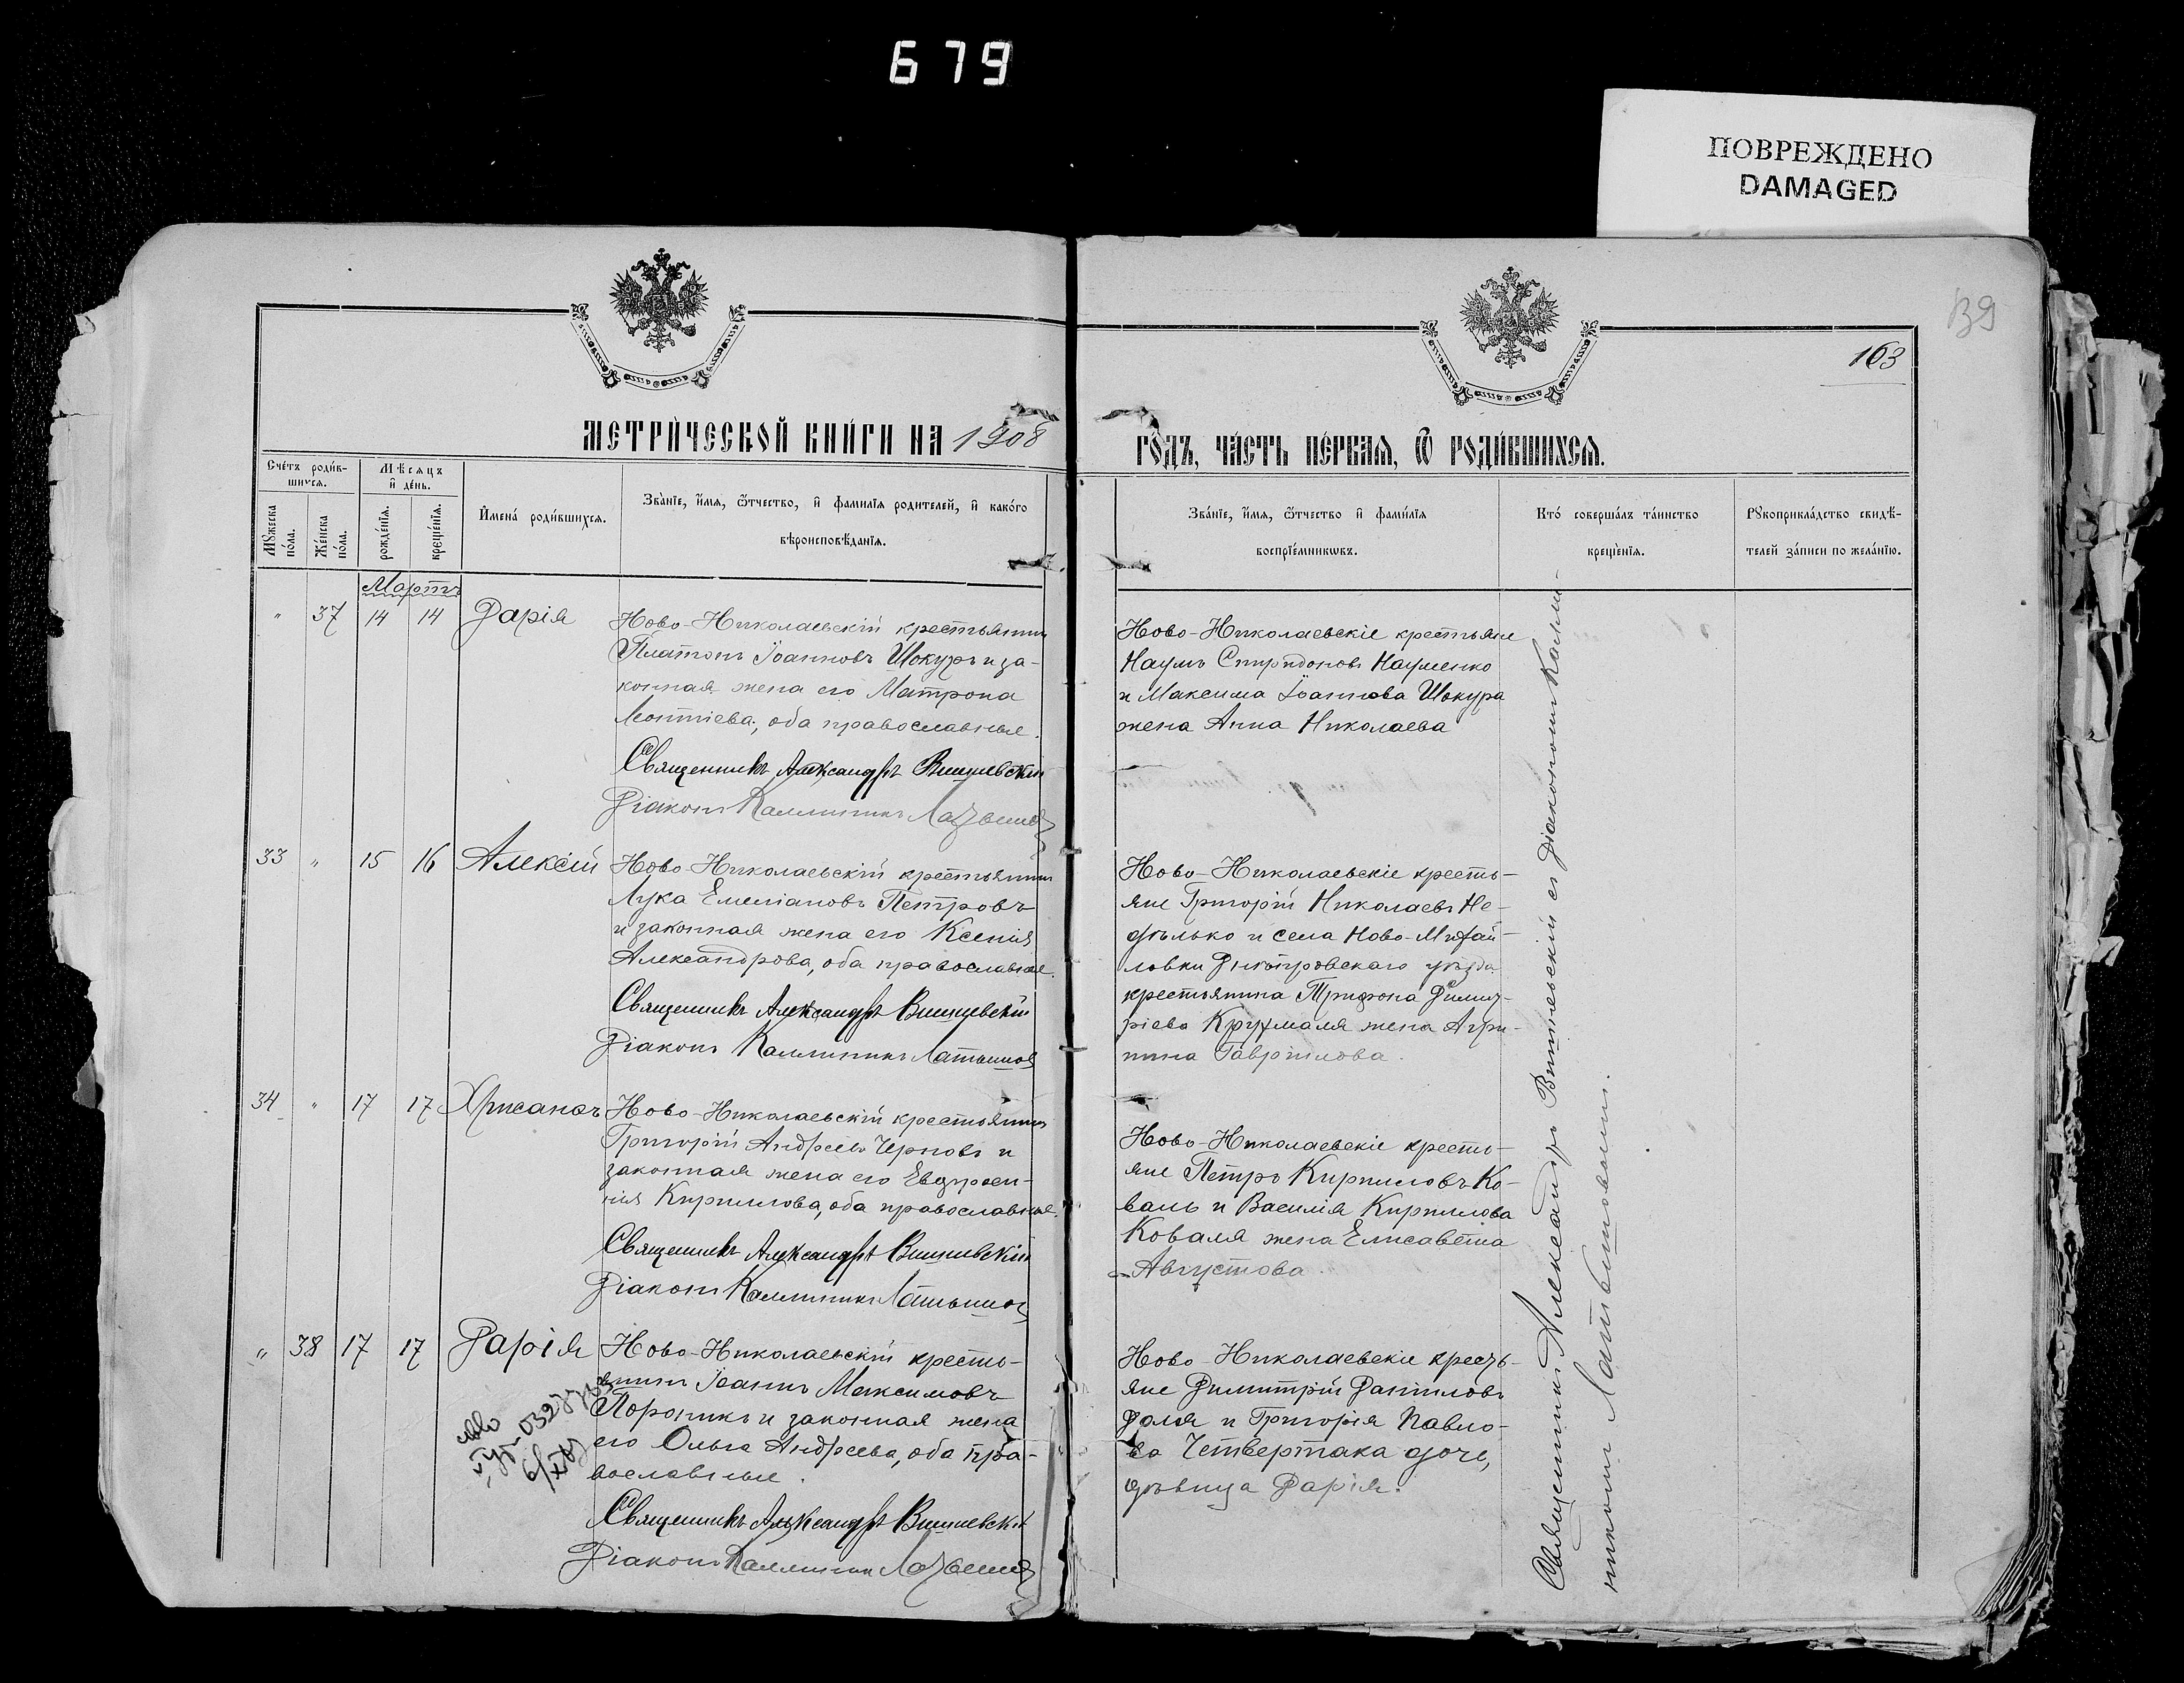 679
ПОВРЕЖДЕНО
DAMAGED
139
163
МЕТРИ́ЧЕСКОЙ КНИ́ГИ НА 1908
ГО́ДЪ, ЧА́СТЬ ПЕ́РВАЯ, Ѿ РОДИ́ВШИХСЯ.
Сче́тъ роди́в-
шихся.
Мꙋжеска по́ла.
Же́нска по́ла.
Мѣсяцъ
и҆ де́нь.
рожде́нїѧ.
креще́нїѧ.
И҆мена́ роди́вшихся.
Зва́нїе, и҆́мѧ, ѻ҆́тчество, и҆ фами́лїѧ роди́телей, и҆ како́го
вѣроисповѣ́данїѧ.
Зва́нїе, и҆́мѧ, ѻ҆́тчество и҆ фами́лїѧ
воспрїе́мникѡвъ.
Кто́ соверша́лъ та́инство
креще́нїѧ.
Рꙋкоприкла́дство свидѣ́-
телей за́писи по жела́нїю.
Мартъ
" 37 14 14 Дарія
Ново-Николаевскій крестьянинъ
Платонъ Іоанновъ Шокуръ и за-
конная жена его Матрона
Леонтіева, оба православные.
Священникъ Александръ Вишневскій
Діаконъ Каллиникъ Латышовъ
Ново-Николаевскіе крестьяне
Наумъ Спиридоновъ Науменко
и Максима Іоаннова Шокура
жена Анна Николаева
33 " 15 16 Алексій
Ново-Николаевскій крестьянинъ
Лука Емеліановъ Петровъ
и законная жена его Ксенія
Александрова, оба православные.
Священникъ Александръ Вишневскій
Діаконъ Каллиникъ Латышовъ
Ново-Николаевскіе кресть-
яне Григорій Николаевъ Не-
дѣлько и села Ново-Михай-
ловки Днѣпровскаго уѣзда
крестьянина Трифона Димит-
ріева Крухмаля жена Агри-
пина Гавріилова.
34 " 17 17 Хрисанѳъ
Ново-Николаевскій крестьянинъ
Григорій Андреевъ Черновъ и
законная жена его Евфросин-
нія Кириллова, оба православные.
Священникъ Александръ Вишневскій
Діаконъ Каллиникъ Латышовъ
Ново-Николаевскіе кресть-
яне Петръ Кирилловъ Ко-
валь и Василія Кириллова
Коваля жена Елисавета
Августова.
" 38 17 17 Дарія
Ново-Николаевскій кресть-
янинъ Іоаннъ Максимовъ
Пороникъ и законная жена
его Ольга Андреева, оба пра-
вославные.
Священникъ Александръ Вишневскій
Діаконъ Каллиникъ Латышовъ
Ново-Николаевскіе кресть-
яне Димитрій Даніиловъ
Доля и Григорія Павло-
ва Четвертака дочь,
дѣвица Дарія.
Священникъ Александръ Вишневскій съ Діакономъ Калли-
никомъ Латышовымъ.